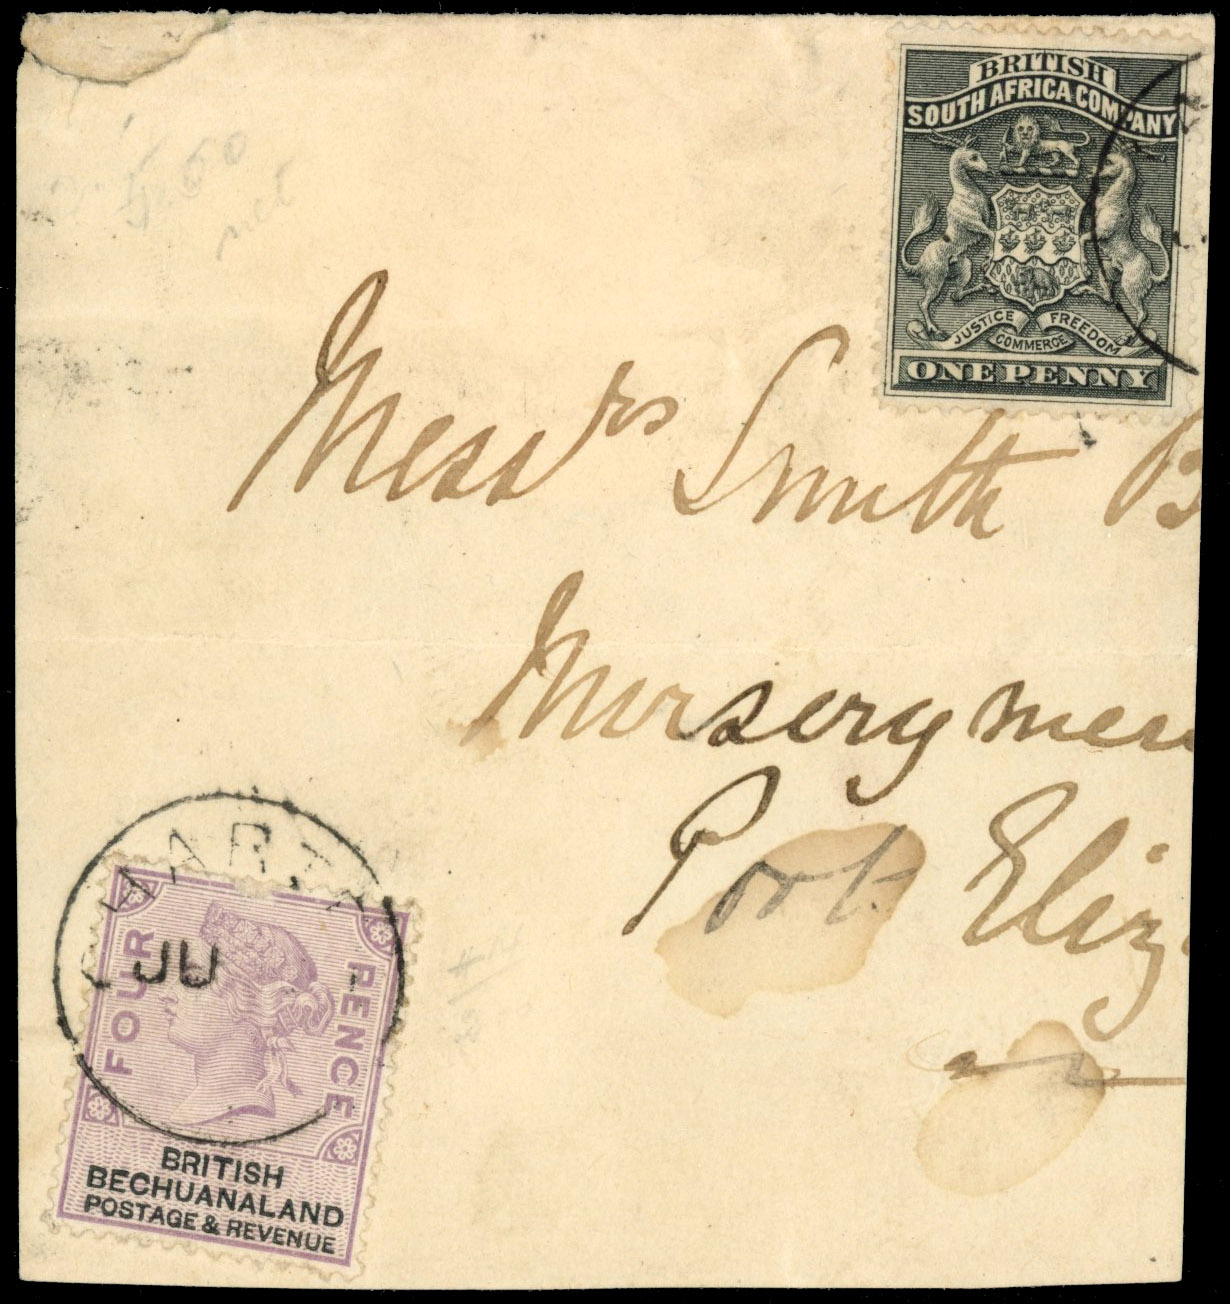 BRITISH
SOUTH AFRICA COMPANY
JUSTICE COMMERCE FREEDOM
ONE PENNY
Messrs Smith B
Nurserymen
Port Eliz
HARTL
JU
FOUR PENCE
BRITISH
BECHUANALAND
POSTAGE & REVENUE